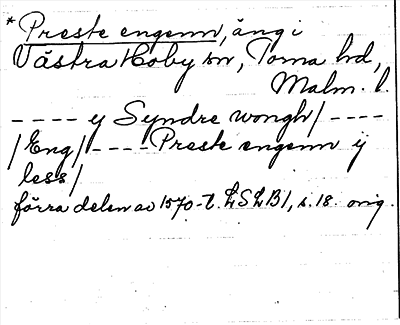 * Preste engenn, äng i
Västra Hoby sn, Torna hd,
Malm. l.
- - - - y Syndre wongh/ - - - -
/Eng/ - - - - Preste engenn ij
less/
förra delen av 1570-t. LSLB1, s. 18. orig.